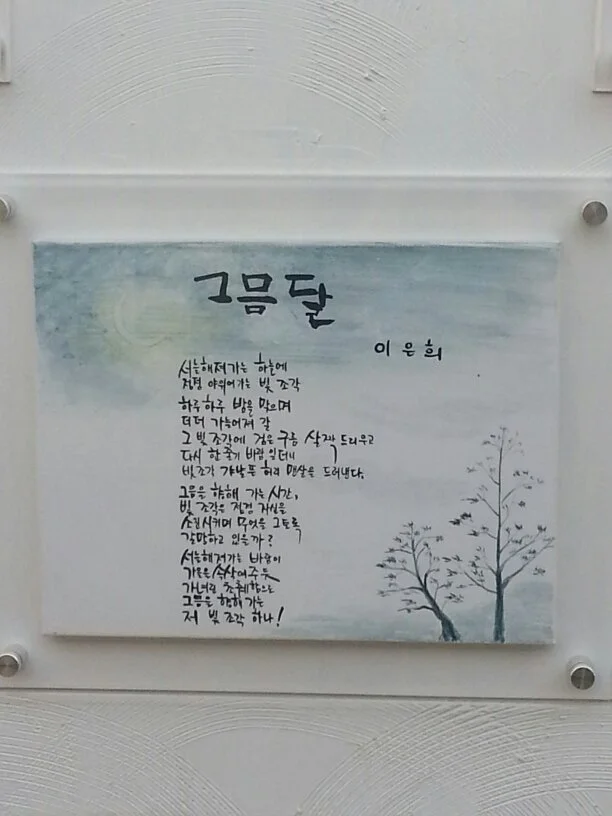 그믐달
이은희
서늘해져가는 하늘에
점점 야위어가는 빛 조각
하루하루 밤을 맞으며
더더 가늘어져 갈
그 빛 조각에 검은 구름 살짝 드리우고
다시 한 줄기 바람 일더니
빛 조각 가냘픈 허리 맨살을 드러낸다.
그믐을 향해 가는 시간,
빛 조각은 점점 자신을
소멸시키며 무엇을 그토록
갈망하고 있을까?
서늘해져가는 바람이
가을을 속삭여주듯
가녀린
그믐을 향해 가는
저 빛 조각 하나!